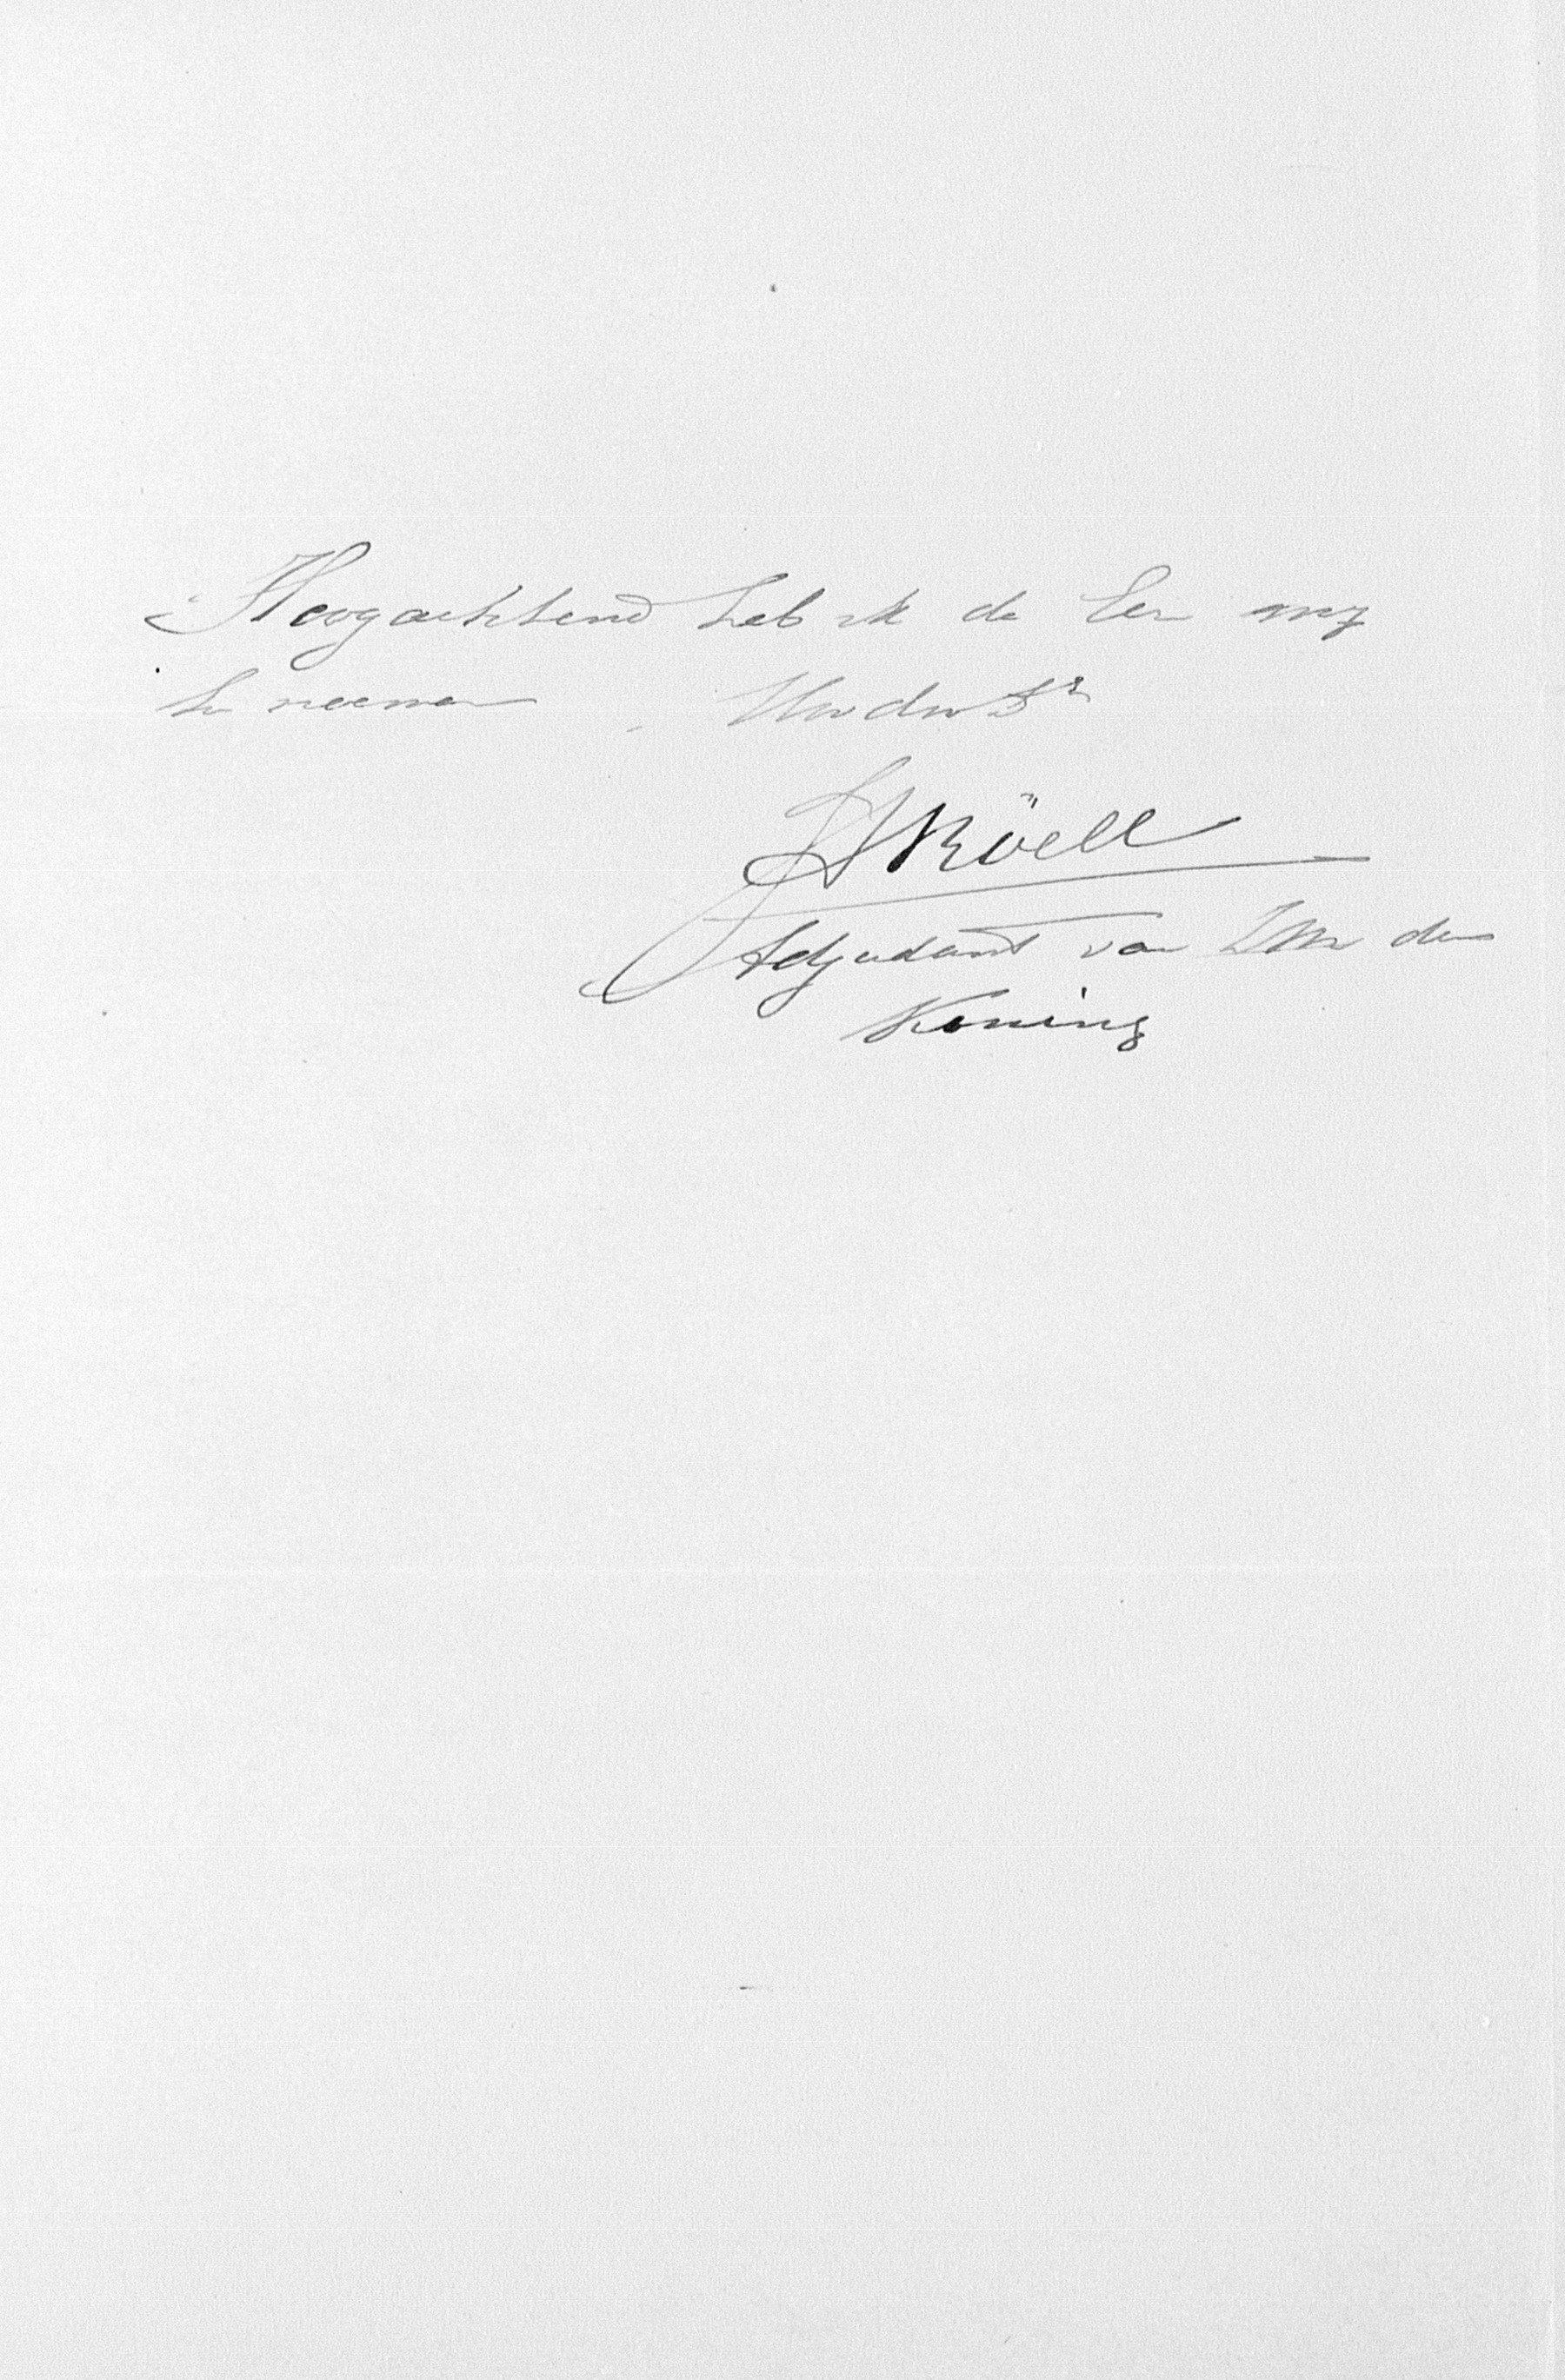 Hoogachtend heb ik de Eer mij
te noemen Uw dw Dr
Röell
Adjudant van ZM den
Koning